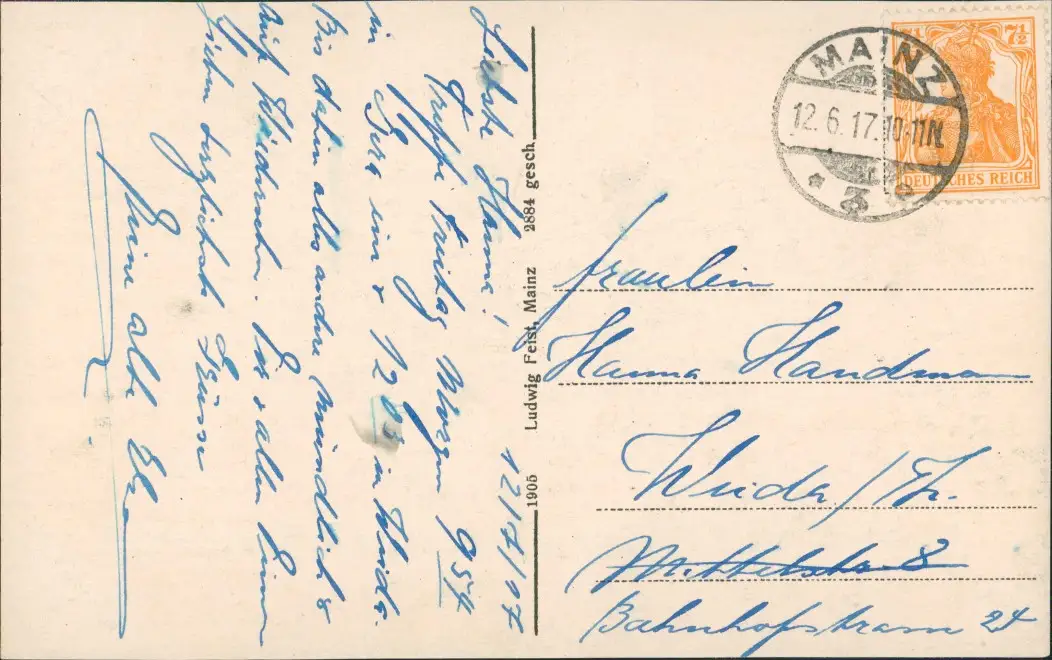 Liebste Hanna! 12/7/17
Treffe Freitag Morgen 9 54
in Gera ein & 12 05 in Weida.
Bis dahin alles andre mündlich &
auf Wiedersehn. Dir & allen Deinen
lieben herzlichste Grüsse
Deine alte
Ludwig Feist, Mainz 2884 gesch.
1905
MAINZ
12.6.17.10-11N.
* 3 e
7½ 7½
DEUTSCHES REICH
Fräulein
Hanna Handma
Weida / Th.
Mittelstr. 8
Bahnhofstrasse 24